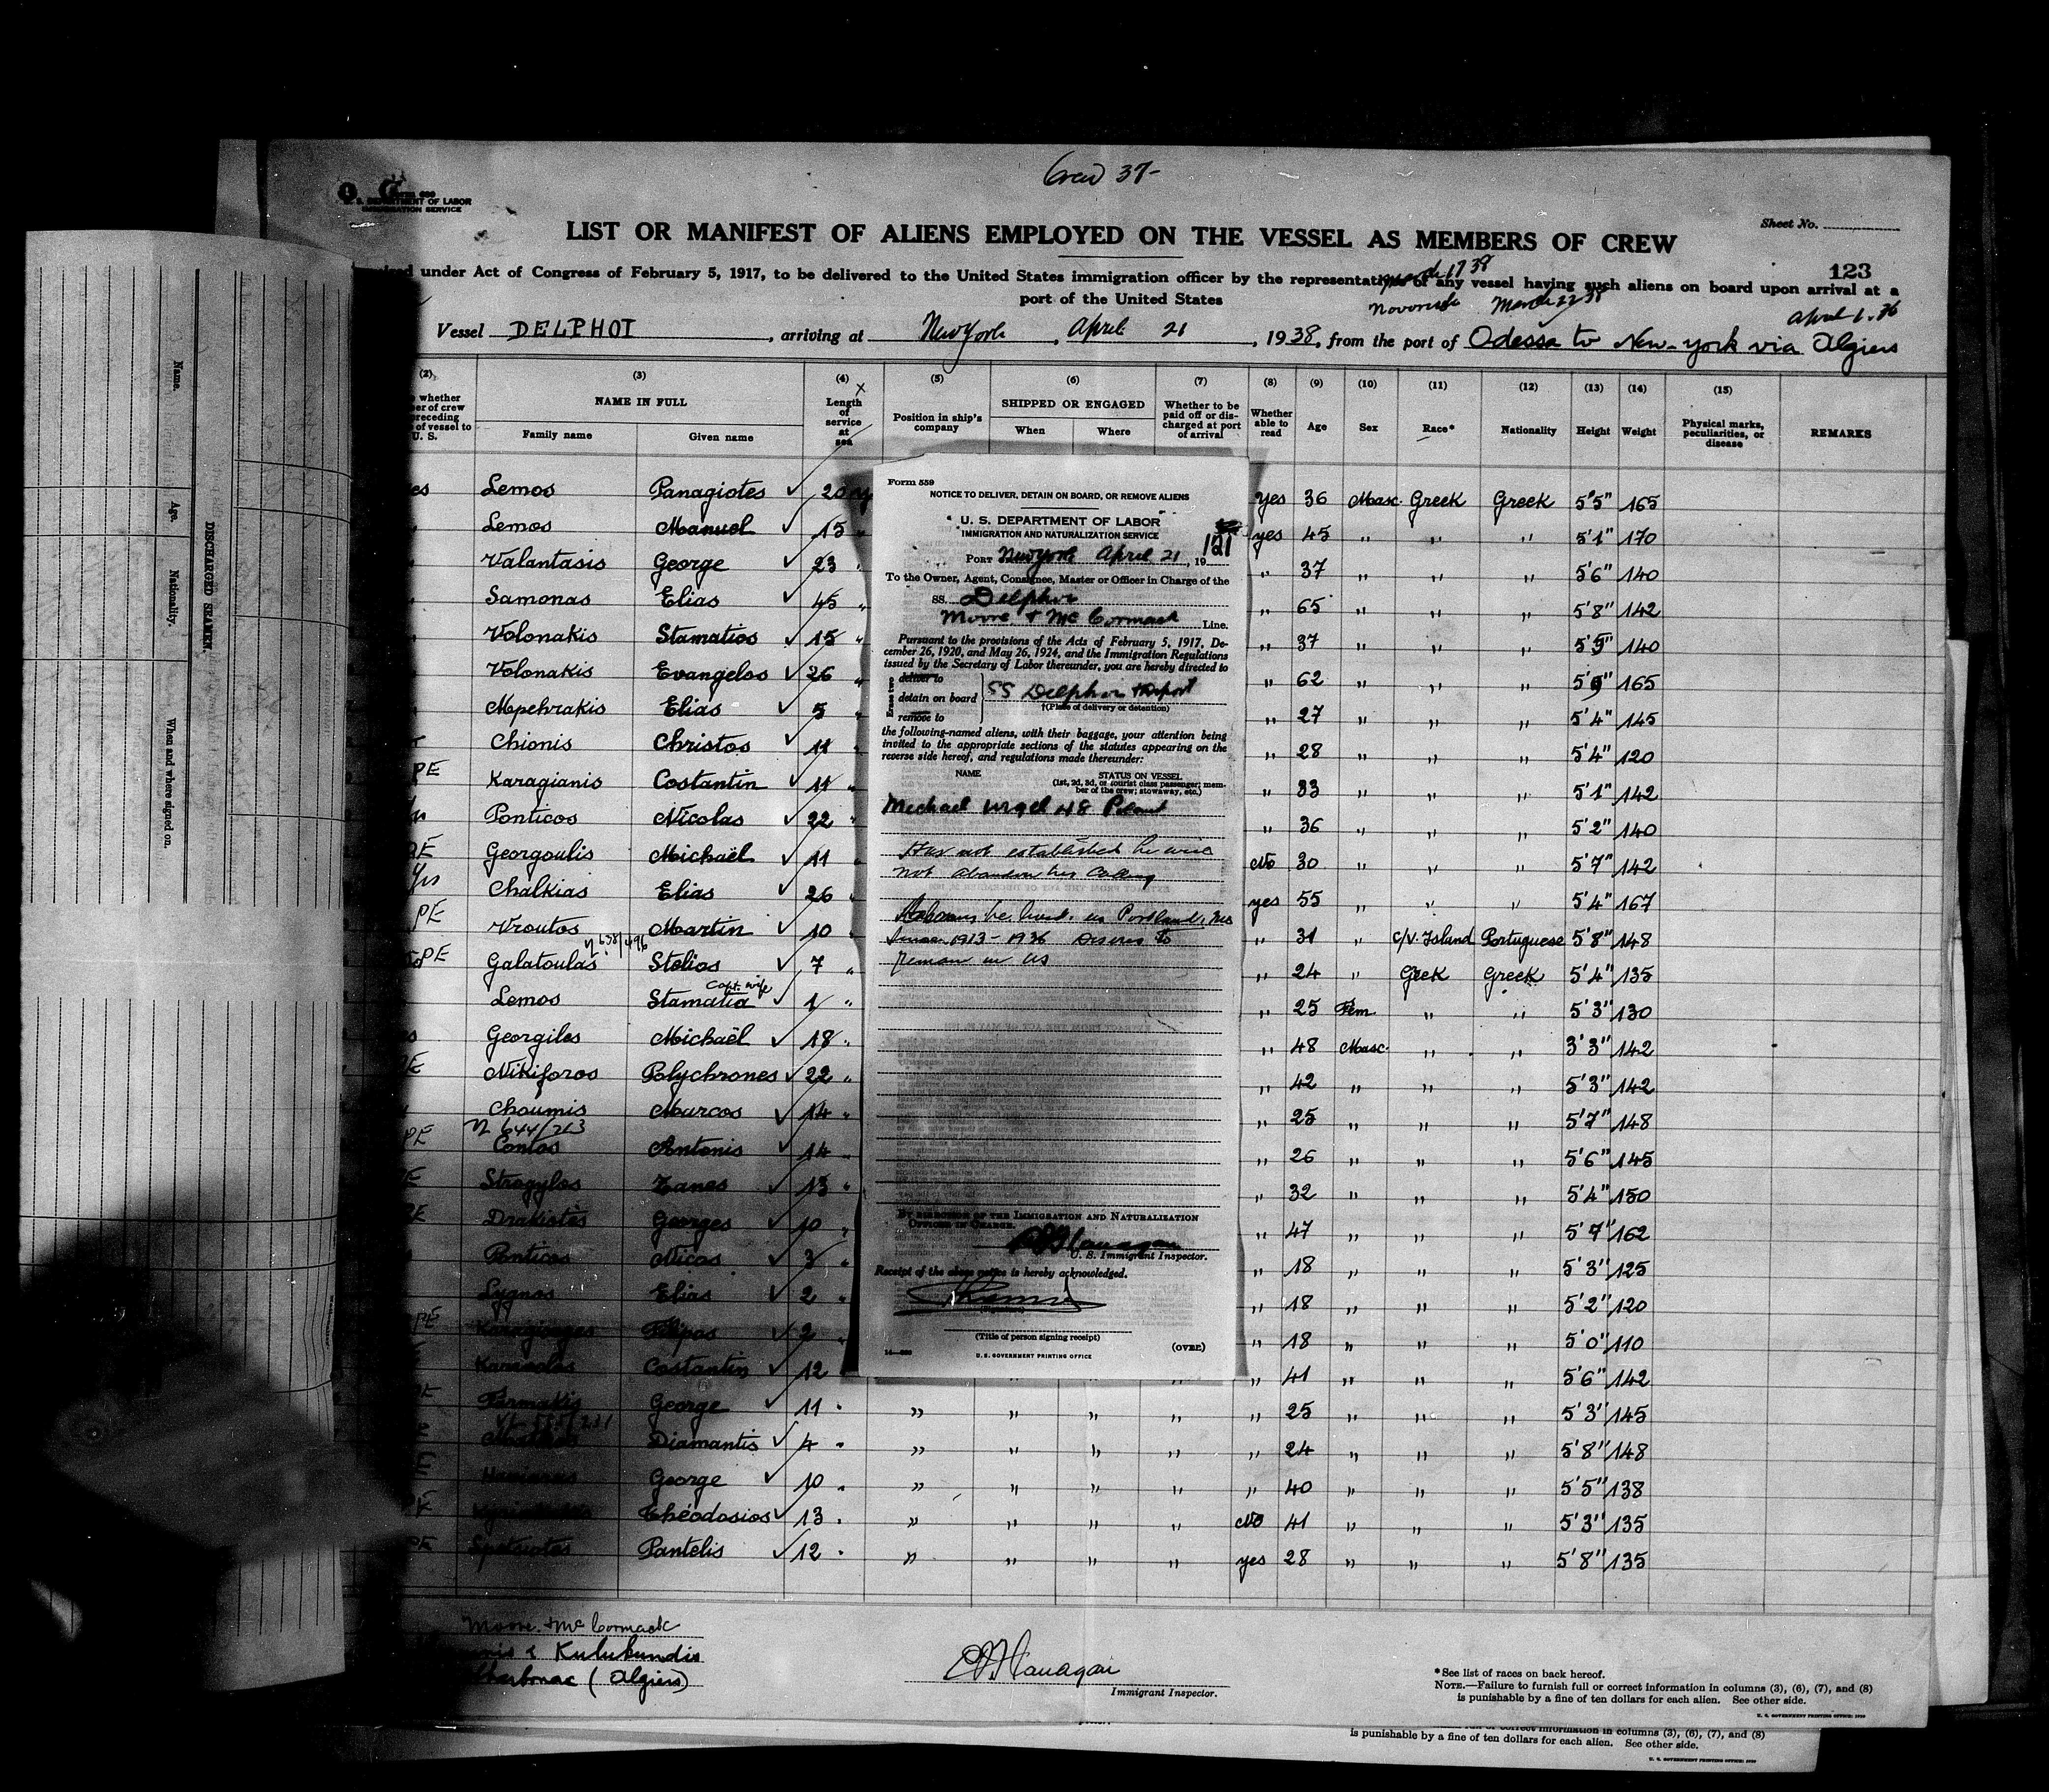 Crew 37-
S. DEPARTMENT OF LABOR
IMMIGRATION SERVICE
Sheet No.
LIST OR MANIFEST OF ALIENS EMPLOYED ON THE VESSEL AS MEMBERS OF CREW
123
under Act of Congress of February 5, 1917, to be delivered to the United States immigration officer by the representatives of any vessel having such aliens on board upon arrival at a
port of the United States
March 22 38
Vessel DELPHOI, arriving at New York, April 21, 1938, from the port of Odessa to New-York via Algiers
(2) (3) (4) (5) (6) (7) (8) (9) (10) (11) (12) (13) (14) (15)
whether
of crew
preceding
of vessel to
U. S.
NAME IN FULL
Family name Given name
Length of service at sea
Position in ship's company
SHIPPED OR ENGAGED
When Where
Whether to be paid off or discharged at port of arrival
Whether able to read
Age Sex Race* Nationality Height Weight
Physical marks, peculiarities, or disease
REMARKS
Lemos Panagiotes ✓ 20 yes 36 Masc. Greek Greek 5'5" 165
Lemos Manuel ✓ 15 yes 45 " " " 5'1" 170
Valantasis George ✓ 23 " 37 " " " 5'6" 140
Samonas Elias ✓ 45 " 65 " " " 5'8" 142
Volonakis Stamatios ✓ 15 " 37 " " " 5'9" 140
Volonakis Evangelos ✓ 26 " 62 " " " 5'9" 165
Mpehrakis Elias ✓ 5 " 27 " " " 5'4" 145
Chionis Christos ✓ 11 " 28 " " " 5'4" 120
PE Karagianis Costantin ✓ 11 " 33 " " " 5'1" 142
Ponticos Nicolas ✓ 22 " 36 " " " 5'2" 140
Georgoulis Michaël ✓ 11 No 30 " " " 5'7" 142
Chalkias Elias ✓ 26 yes 55 " " " 5'4" 167
PE Vroutos Martin ✓ 10 " 31 " C/V. Island Portuguese 5'8" 148
PE Galatoulas Stelios ✓ 7 " 24 " Greek Greek 5'4" 135
Capt. wife
Lemos Stamatia ✓ 1 " 25 Fem. " " 5'3" 130
Georgiles Michaël ✓ 18 " 48 Masc. " " 3'3" 142
Nikiforos Polychrones ✓ 22 " 42 " " " 5'3" 142
Choumis Marcos ✓ 14 " 25 " " " 5'7" 148
PE Contos Antonis ✓ 14 " 26 " " " 5'6" 145
Strogylos Zanes ✓ 13 " 32 " " " 5'4" 150
Drakiotes Georges ✓ 10 " 47 " " " 5'7" 162
Ponticos Nicos ✓ 3 " 18 " " " 5'3" 125
Lygnos Elias ✓ 2 " 18 " " " 5'2" 120
PE ✓ 2 " 18 " " " 5'0" 110
Costantin ✓ 12 " 41 " " " 5'6" 142
Parmakis George ✓ 11 " " " " " " 25 " " " 5'3" 145
Diamantis ✓ 4 " " " " " " 24 " " " 5'8" 148
George ✓ 10 " " " " " " 40 " " " 5'5" 138
Théodosios ✓ 13 " " " " " No 41 " " " 5'3" 135
PE Spetsiotes Pantelis ✓ 12 " " " " " yes 28 " " " 5'8" 135
Form 559
NOTICE TO DELIVER, DETAIN ON BOARD, OR REMOVE ALIENS
U. S. DEPARTMENT OF LABOR
IMMIGRATION AND NATURALIZATION SERVICE
121
PORT New York April 21, 19
To the Owner, Agent, Consignee, Master or Officer in Charge of the
SS. Delphoi
Moore & McCormack Line.
Pursuant to the provisions of the Acts of February 5, 1917, De-
cember 26, 1920, and May 26, 1924, and the Immigration Regulations
issued by the Secretary of Labor thereunder, you are hereby directed to
Erase two
deliver to
detain on board
remove to
SS Delphoi
†(Place of delivery or detention)
the following-named aliens, with their baggage, your attention being
invited to the appropriate sections of the statutes appearing on the
reverse side hereof, and regulations made thereunder:
NAME STATUS ON VESSEL
(1st, 2d, 3d, or tourist class passenger; mem-
ber of the crew; stowaway, etc.)
Michael 48
Has not established he will
not abandon his calling
he lived in Portland, Me
1913-1936 Desires to
remain in US
BY DIRECTION OF THE IMMIGRATION AND NATURALIZATION
OFFICER IN CHARGE.
Flanagan
U. S. Immigrant Inspector.
Receipt of the above notice is hereby acknowledged.
(Signature)
(Title of person signing receipt)
U. S. GOVERNMENT PRINTING OFFICE
(OVER)
DISCHARGED SEAMEN.
Name. Age. Nationality. When and where signed on.
Moore & McCormack
& Kulukundis
(Algiers)
Flanagan
Immigrant Inspector.
*See list of races on back hereof.
NOTE.—Failure to furnish full or correct information in columns (3), (6), (7), and (8)
is punishable by a fine of ten dollars for each alien. See other side.
U. S. GOVERNMENT PRINTING OFFICE
is punishable by a fine of ten dollars for each alien. See other side.
U. S. GOVERNMENT PRINTING OFFICE